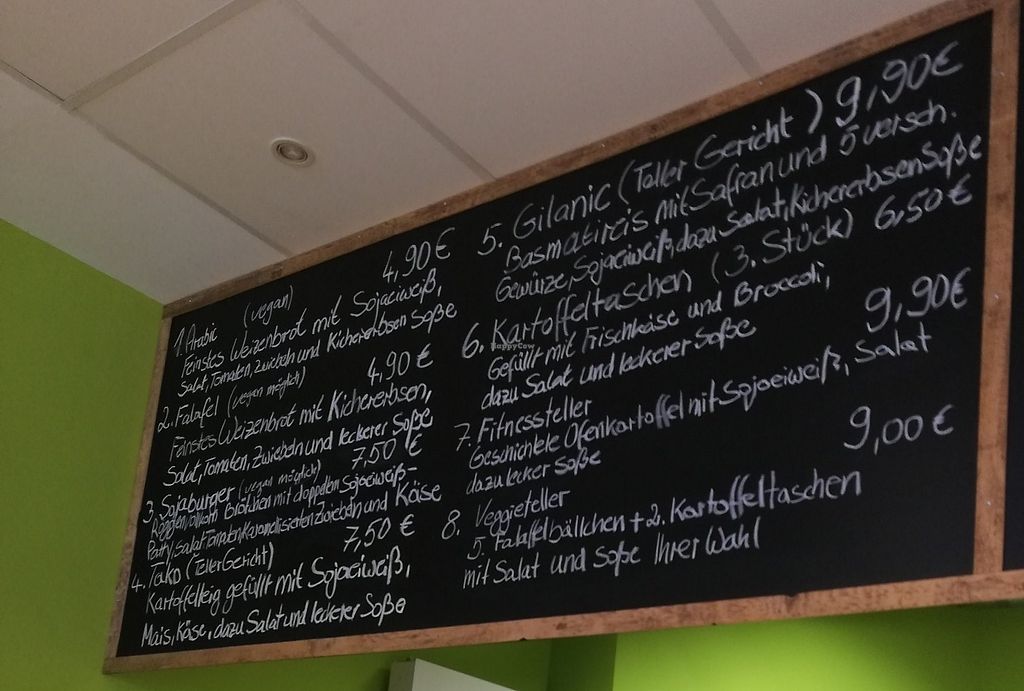 1. Arabic (vegan) 4,90 €
Feinstes Weizenbrot mit Sojaeiweiß,
Salat, Tomaten, Zwiebeln und Kichererbsen Soße
2. Falafel (vegan möglich) 4,90 €
Feinstes Weizenbrot mit Kichererbsen,
Salat, Tomaten, Zwiebeln und leckerer Soße
3. Sojaburger (vegan möglich) 7,50 €
Roggenvollkorn Brötchen mit doppeltem Sojaeiweiß-
Patty, Salat Tomaten, Karamelisierten Zwiebeln und Käse
4. Tako (Teller Gericht) 7,50 €
Kartoffelteig gefüllt mit Sojaeiweiß,
Mais, Käse, dazu Salat und leckerer Soße
5. Gilanic (Teller Gericht) 9,90€
Basmatireis mit Safran und 5 versch.
Gewürze, Sojaeiweiß, dazu Salat, Kichererbsen Soße
6. Kartoffeltaschen (3. Stück) 6,50 €
Gefüllt mit Frischkäse und Broccoli,
dazu Salat und leckerer Soße
7. Fitnessteller 9,90€
Geschichtete Ofenkartoffel mit Sojaeiweiß, Salat
dazu lecker Soße
8. Veggieteller 9,00€
5. Falaffelbällchen + 2. Kartoffeltaschen
mit Salat und Soße Ihrer Wahl
HappyCow